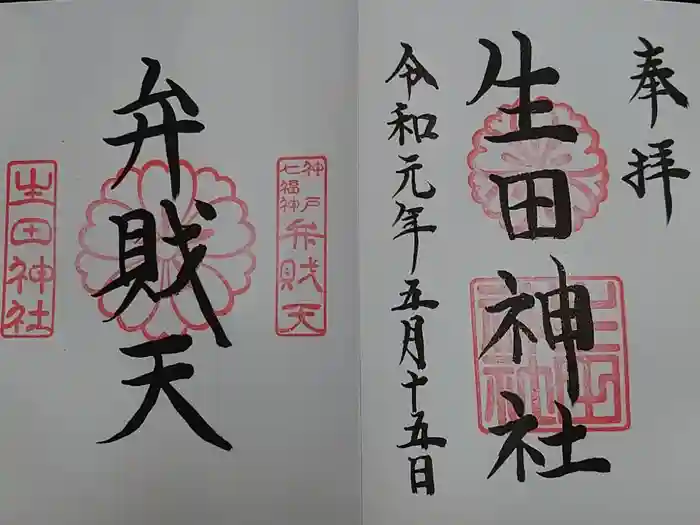 奉拝
生田神社
生田神社
令和元年五月十五日
神戸
七福神
弁財天
弁財天
生田神社